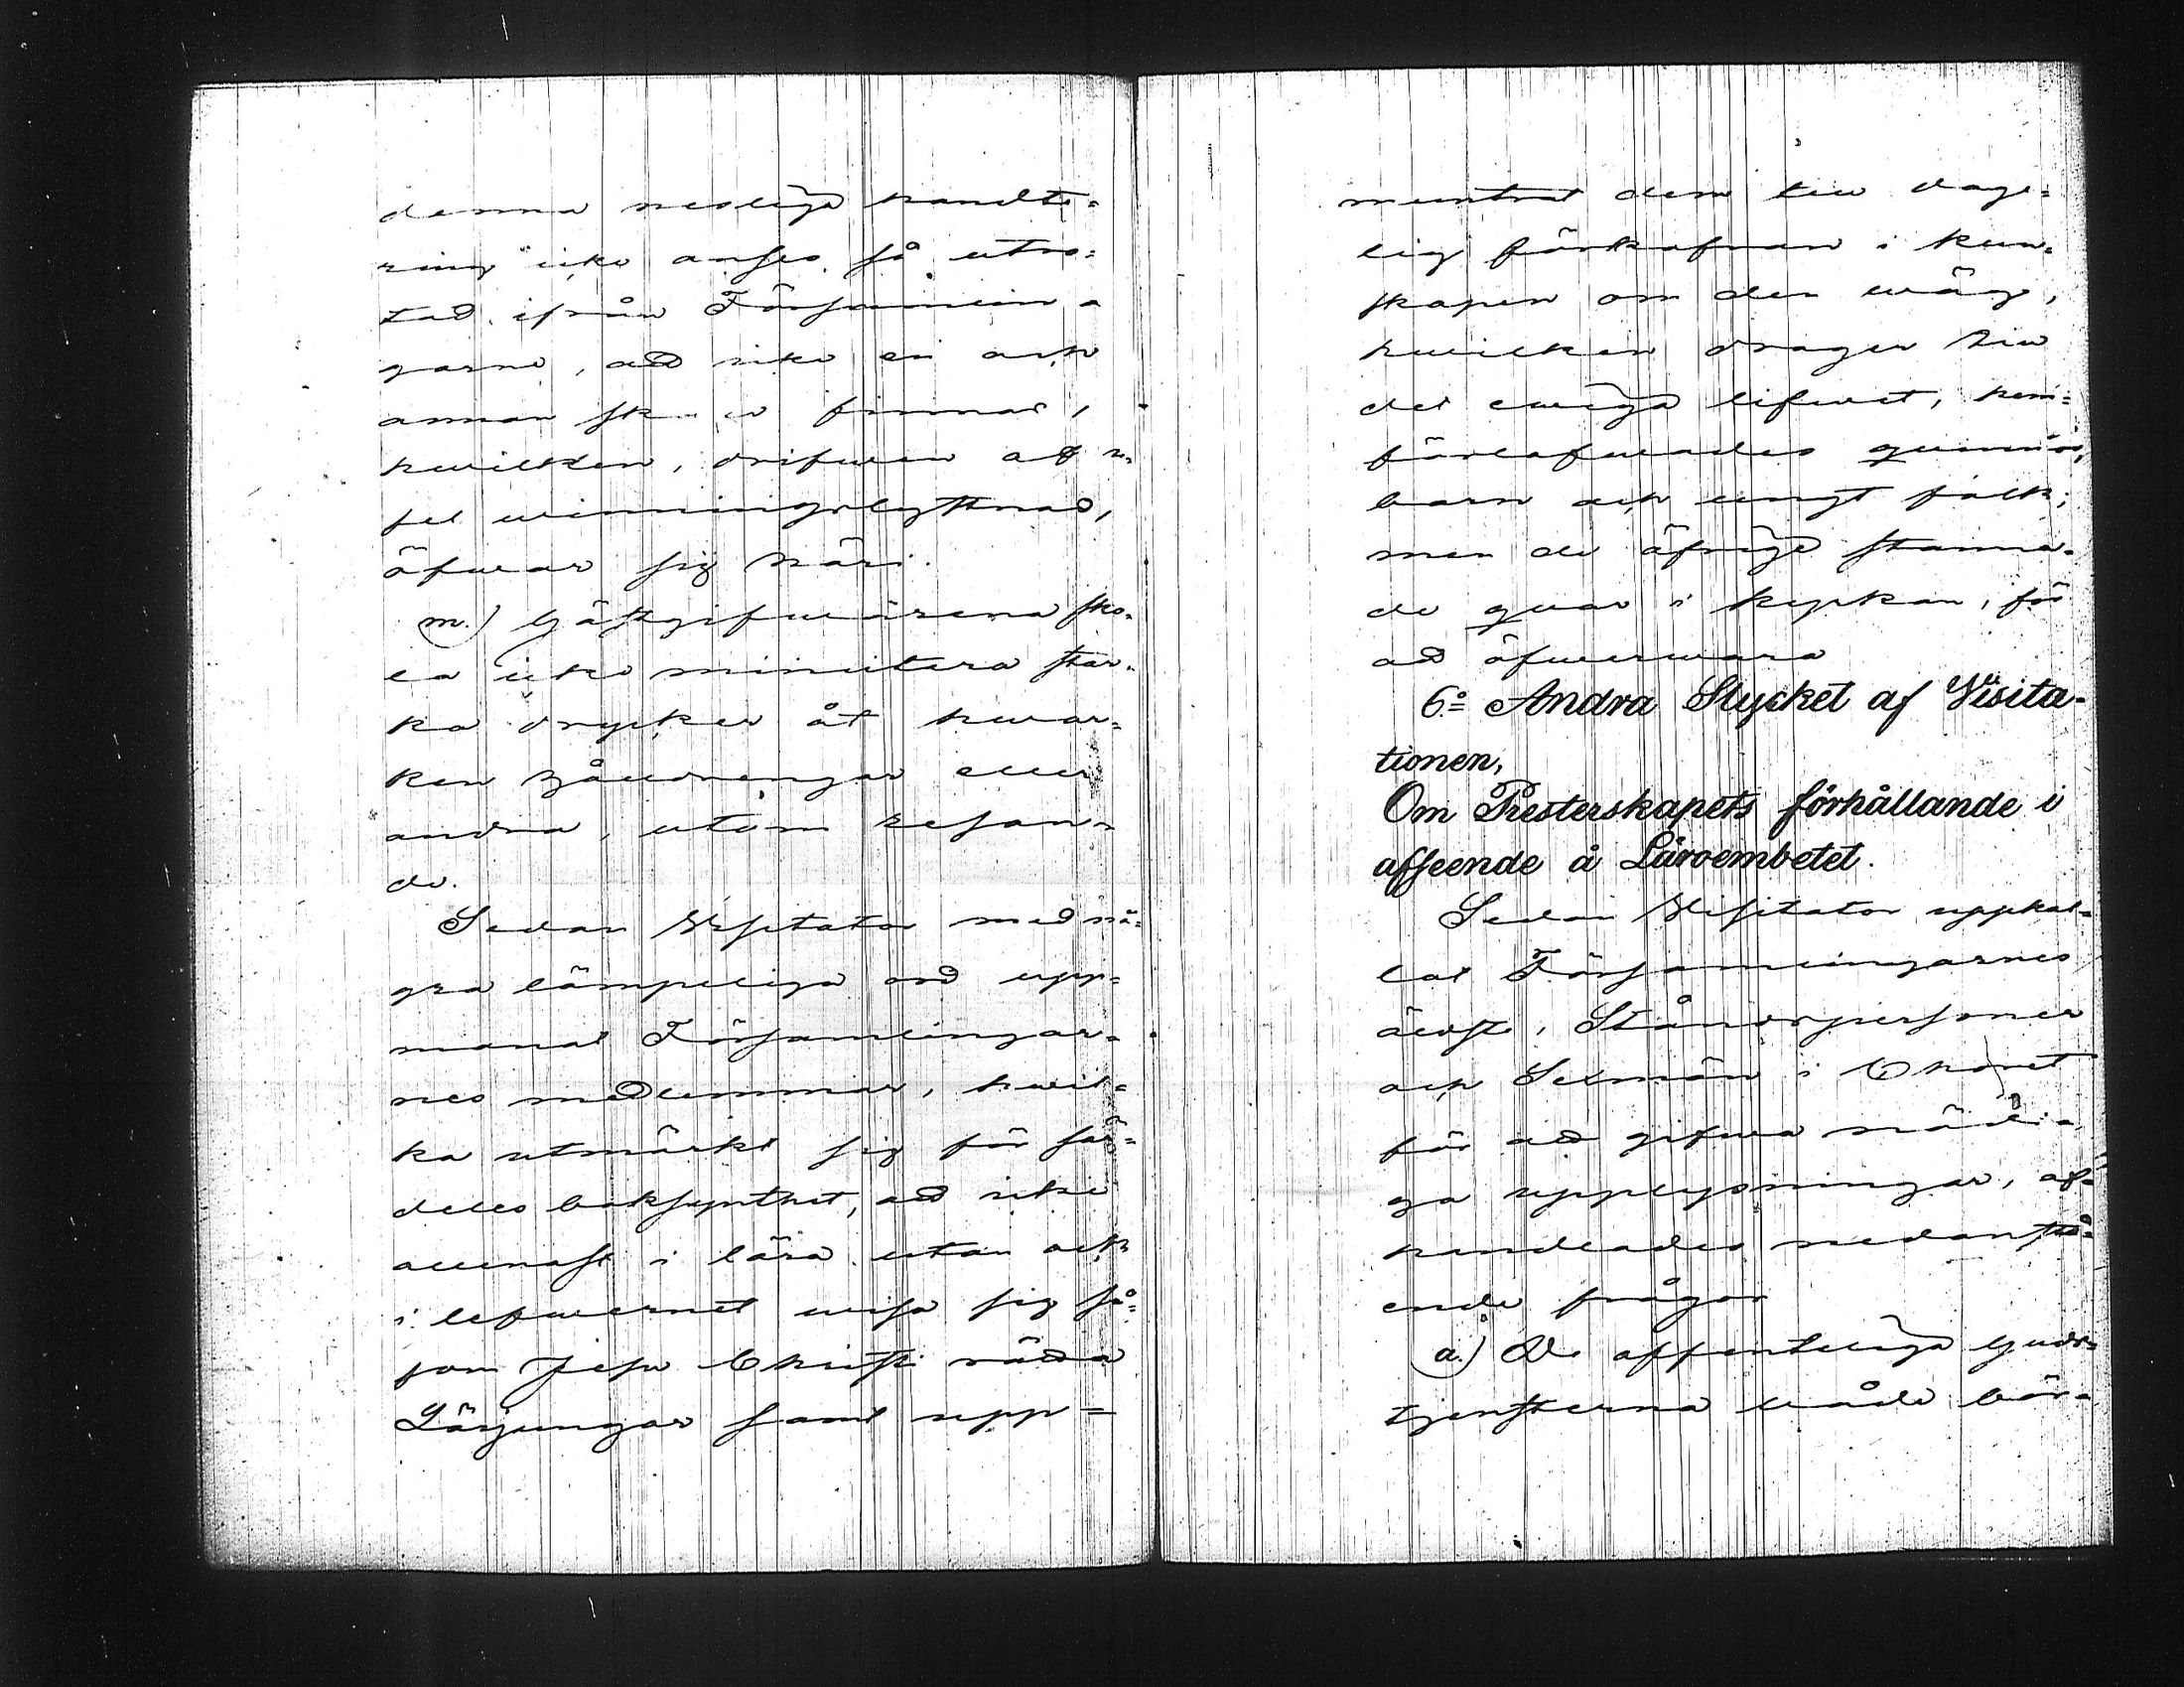 denna nesliga handte=
ring icke anses så utro=
tad ifrån Församlin=
garne, att icke en och
annan finnas,
hwilken, drifwen af
sel winningslystnad,
öfwar sig häri.
m.) Gästgifwarena sko=
la icke minutera star=
ka drycker åt hwar=
ken hålldrengar eller
andra, utom resan=
de.
Sedan Visitator med nå=
gra lämpeliga ord upp=
manat Församlingar=
nes medlemmar, hwil=
ka utmärkt sig för sär=
deles boksynthet, att icke
allenast i lära utan ock
i lefwernet wisa sig så=
som Jesu Christi rätta
Lärjungar samt upp=
muntrat dem till dage=
lig förkofran i kun=
skapen om den wäg,
hwilken drager till
det ewiga lifwet, hem=
förlofwades qwinnor,
barn och ungt folk;
men de öfrige stanna=
de qwar i kyrkan, för
att öfwerwara
6:o Andra Stycket af Visita=
tionen,
Om Presterskapets förhållande i
afseende å Läroembetet.
Sedan Visitator uppkal=
lat Församlingarnes
äldste, Ståndspersoner
och Sexmän i Choret
för att gifwa nödi=
ga upplysningar, af=
handlades nedanstå=
ende frågor
a.) De offentliga Guds=
tjensterna både bör=